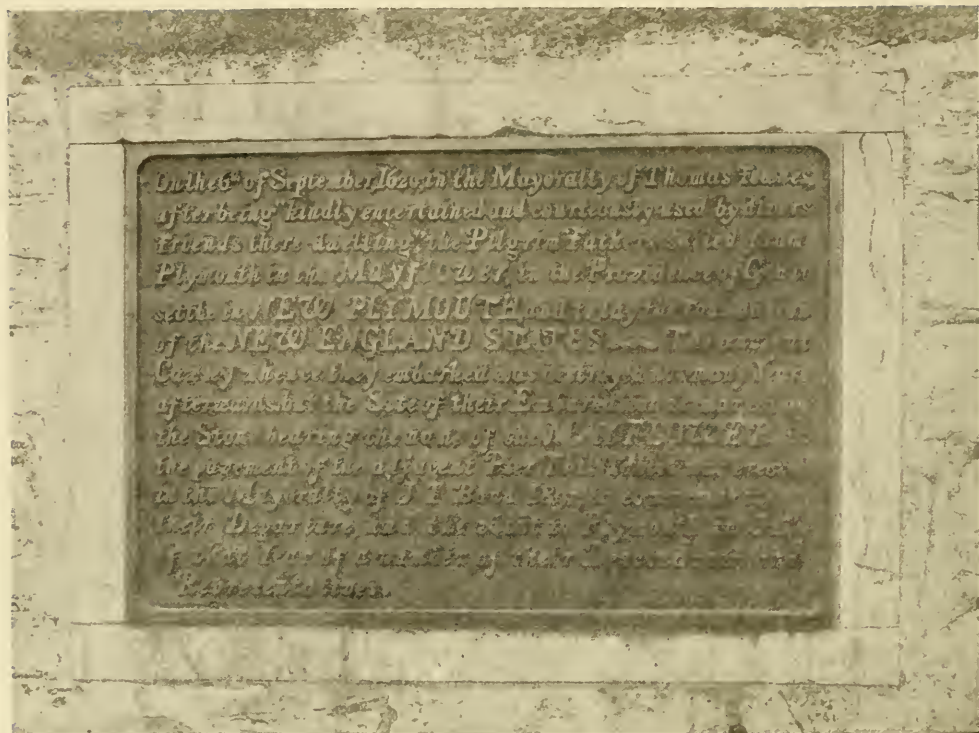 On the 6th of September, 1620, in the Mayoralty of Thomas
after being "kindly entertained and courteously used by divers
Friends there dwelling," the Pilgrim Fathers sailed from
Plymouth in the Mayflower, in the Providence of God to
settle in NEW PLYMOUTH, and to lay the Foundation
of the NEW ENGLAND STATES The ancient
whence they embarked was destroyed not many Years
afterwards, but the Site of their Embarkation is marked by
the Stone bearing the name of the MAYFLOWER in
the pavement of the adjacent Pier. This Tablet was erected
in the Mayoralty of J. T. Bond
their Departure, and the visit to Plymouth
of of a number of their Descendants and